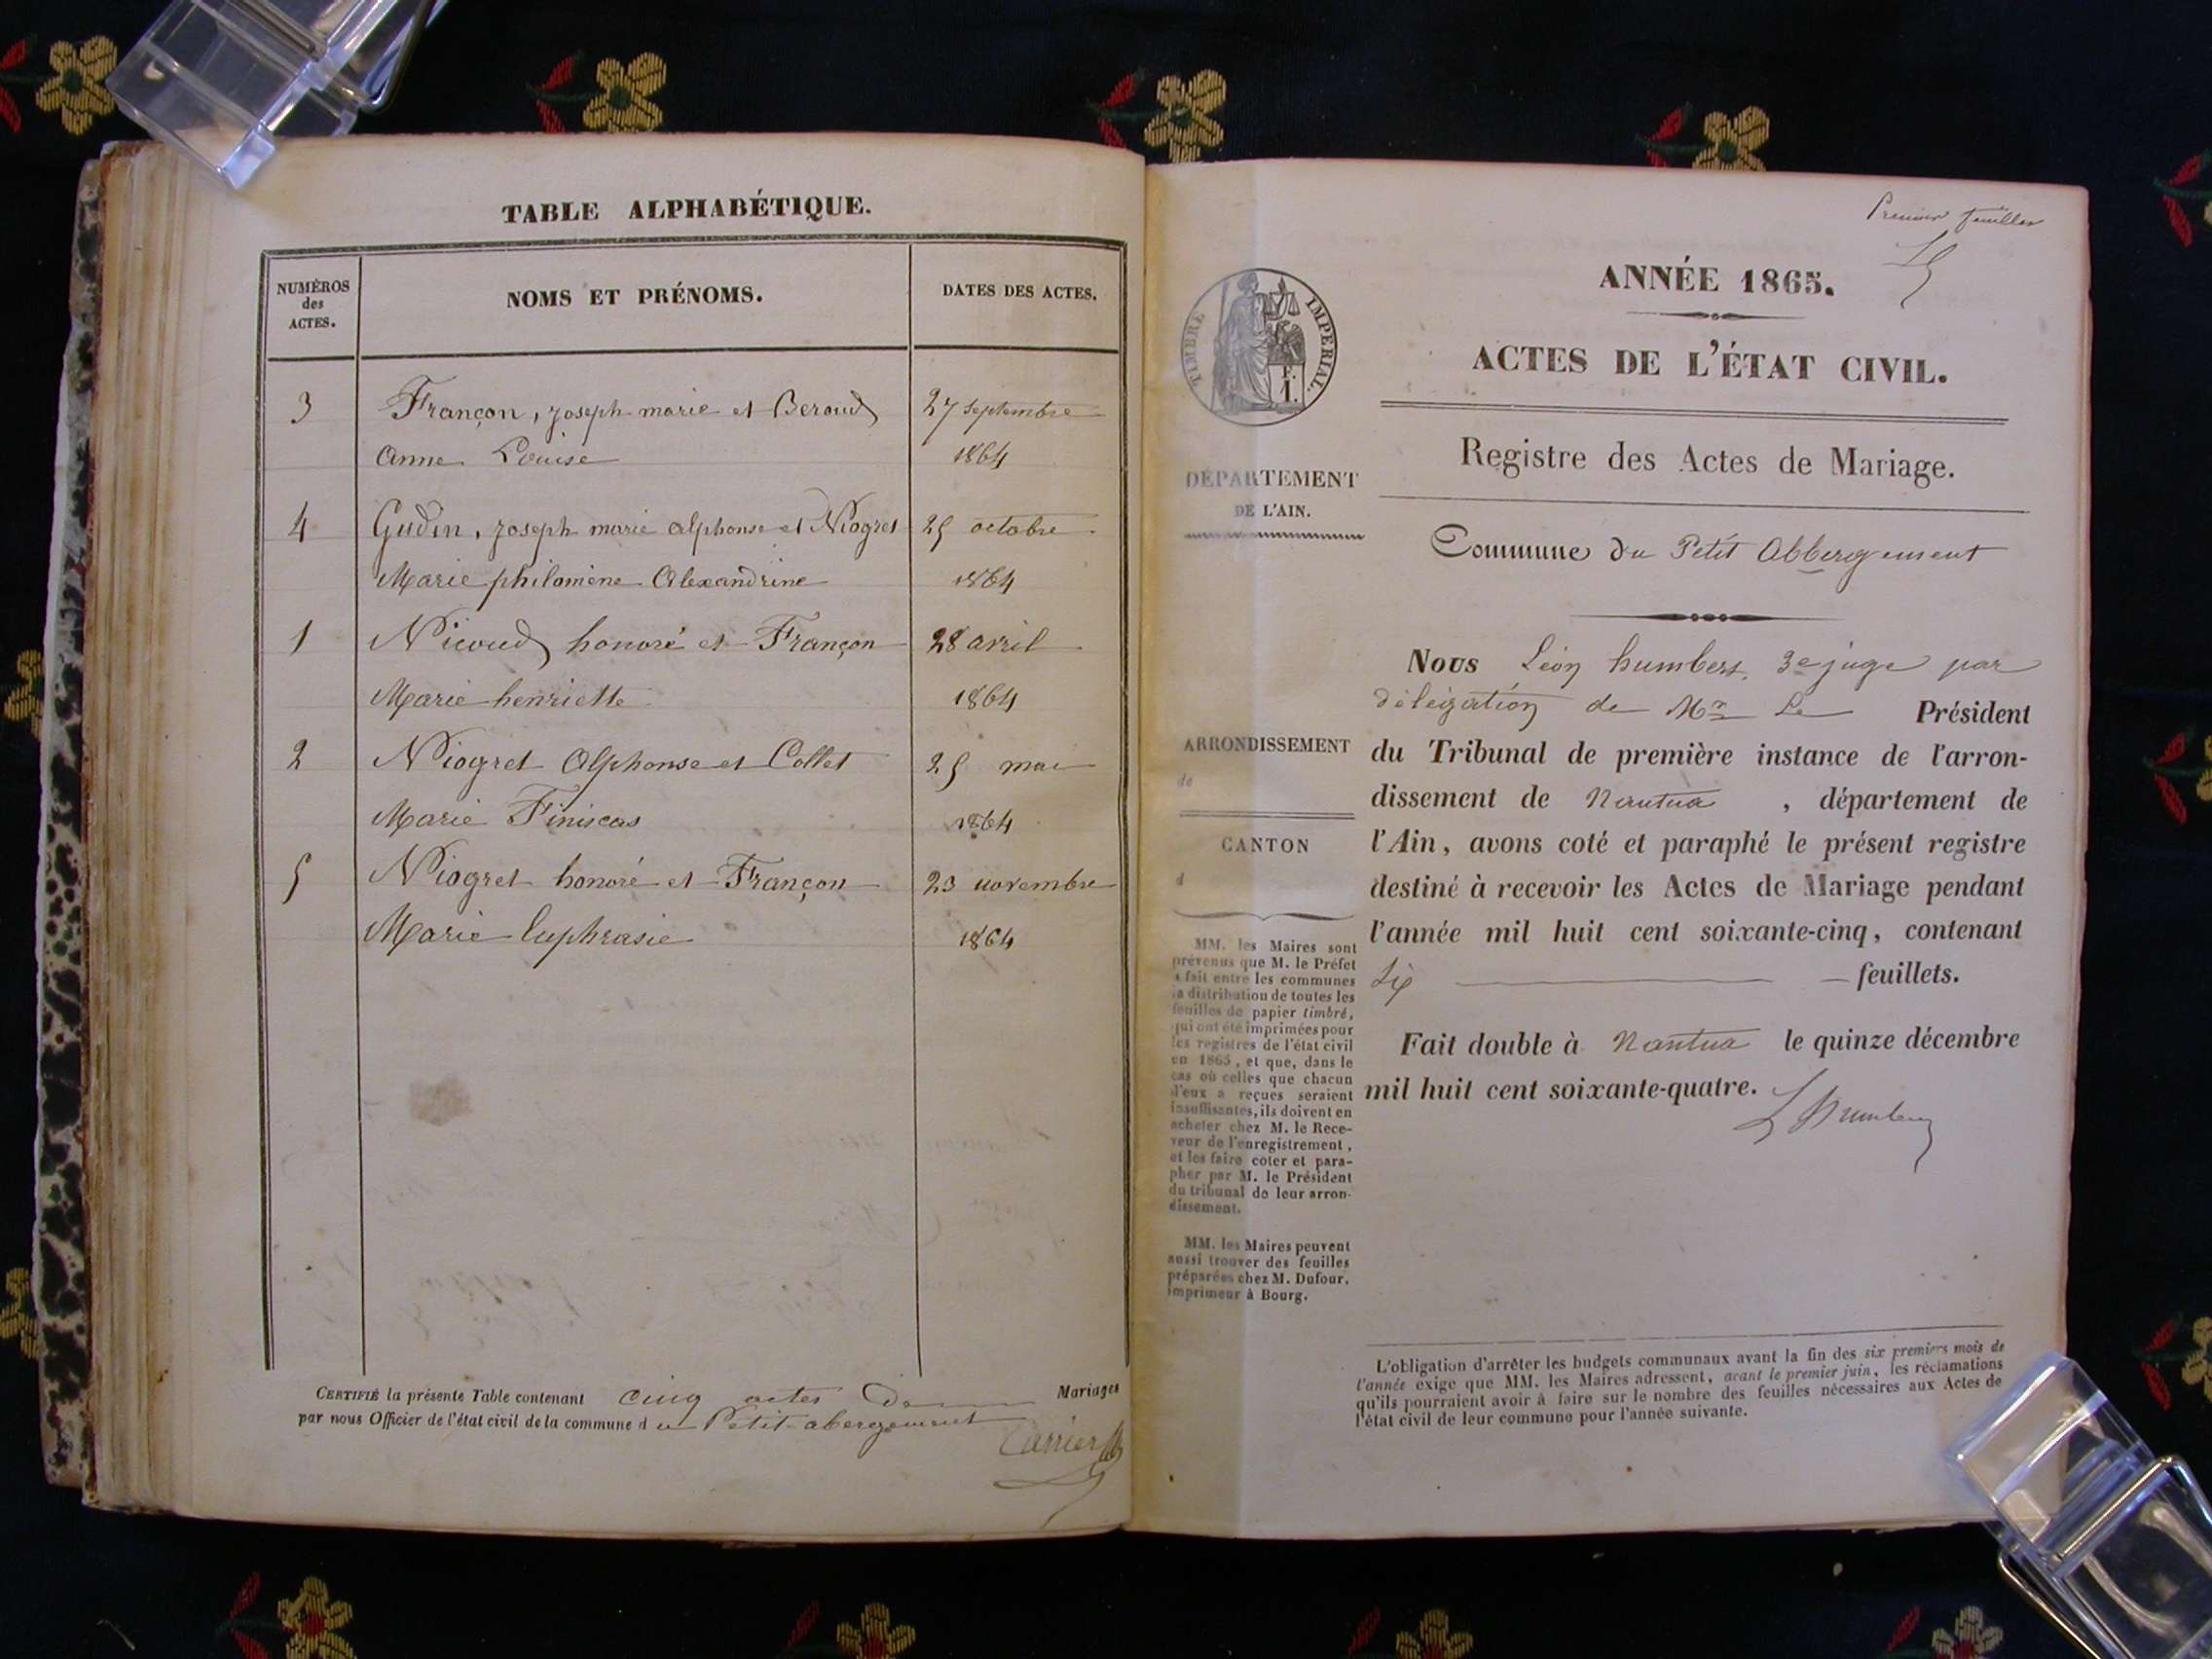 TABLE ALPHABÉTIQUE.
NUMÉROS
des
ACTES.
NOMS ET PRÉNOMS.
DATES DES ACTES.
3 Françon, joseph marie et Beroud 27 septembre
anne Louise 1864
4 Gudin, joseph marie alphonse et Niogret 25 octobre
Marie philomène Alexandrine 1864
1 Nicoud honoré et Françon 28 avril
Marie henriette 1864
2 Niogret Alphonse et Collet 25 mai
Marie 1864
5 Niogret honoré et Françon 23 novembre
Marie Euphrasie 1864
CERTIFIÉ la présente Table contenant cinq actes de Mariages
par nous Officier de l'état civil de la commune du Petit-abergement
Carrier
Premier feuillet
ANNÉE 1865.
ACTES DE L'ÉTAT CIVIL.
TIMBRE IMPÉRIAL.
Registre des Actes de Mariage.
DÉPARTEMENT
DE L'AIN.
Commune du Petit Abbergement
Nous Léon humbert, 3e juge par
délégation de Mr Le Président
du Tribunal de première instance de l'arron-
dissement de Nantua, département de
l'Ain, avons coté et paraphé le présent registre
destiné à recevoir les Actes de Mariage pendant
l'année mil huit cent soixante-cinq, contenant
Six feuillets.
Fait double à Nantua le quinze décembre
mil huit cent soixante-quatre.
L Humbert
ARRONDISSEMENT
de
CANTON
d
MM. les Maires sont
prévenus que M. le Préfet
a fait entre les communes
la distribution de toutes les
feuilles de papier timbré,
qui ont été imprimées pour
les registres de l'état civil
en 1865, et que, dans le
cas où celles que chacun
d'eux a reçues seraient
insuffisantes, ils doivent en
acheter chez M. le Rece-
veur de l'enregistrement,
et les faire coter et para-
pher par M. le Président
du tribunal de leur arron-
dissement.
MM. les Maires peuvent
aussi trouver des feuilles
préparées chez M. Dufour,
imprimeur à Bourg.
L'obligation d'arrêter les budgets communaux avant la fin des six premiers mois de
l'année exige que MM. les Maires adressent, avant le premier juin, les réclamations
qu'ils pourraient avoir à faire sur le nombre des feuilles nécessaires aux Actes de
l'état civil de leur commune pour l'année suivante.